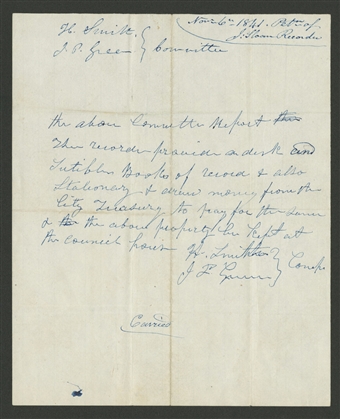 Nov 6th 1841. Petn of
J. Sloan Recorder
H. Smith
J. P. Green } Committee
the above Committe Report
The recorder provide a desk and
Sutible Books of record & also
Stationary & draw money from the
City Treasury to pay for the same
& the above property be Kept at
the council house
H. Smith
J P Green } Comte
Carried